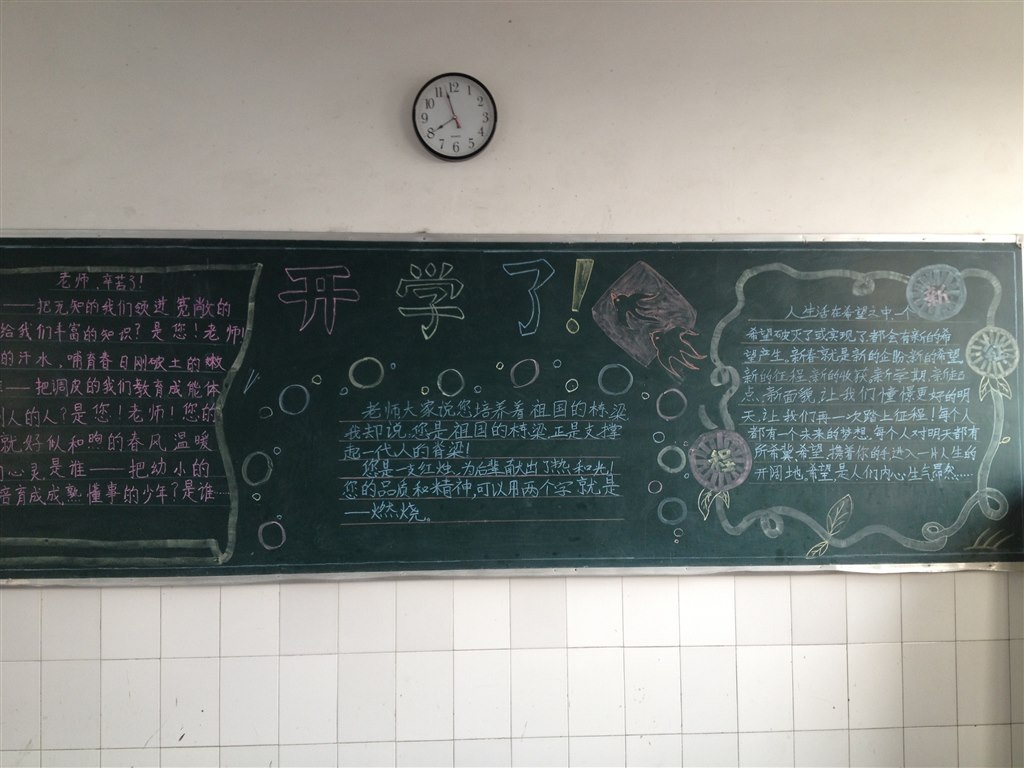 12
1
2
3
4
5
6
7
8
9
10
11
开学了!
老师,辛苦了!
——把无知的我们领进宽敞的
给我们丰富的知识?是您!老师!
的汗水,哺育春日刚破土的嫩
——把调皮的我们教育成能体
人的人?是您!老师!您的
就好似和煦的春风温暖
心灵.是谁——把幼小的
培育成成熟懂事的少年?是谁……
老师大家说您培养着祖国的栋梁
我却说.您是祖国的栋梁.正是支撑
起一代人的脊梁!
您是一支红烛,为后辈献出了热和光!
您的品质和精神,可以用两个字就是
——燃烧。
新
征
程
人生活在希望之中.一个
希望破灭了或实现了都会有新的希
望产生.新春就是新的企盼.新的希望.
新的征程.新的收获.新学期.新起
点.新面貌.让我们憧憬更好的明
天.让我们再一次踏上征程!每个人
都有一个未来的梦想.每个人对明天都有
所希冀.希望.携着你的手.进入一片人生的
开阔地.希望.是人们内心生气昂然……